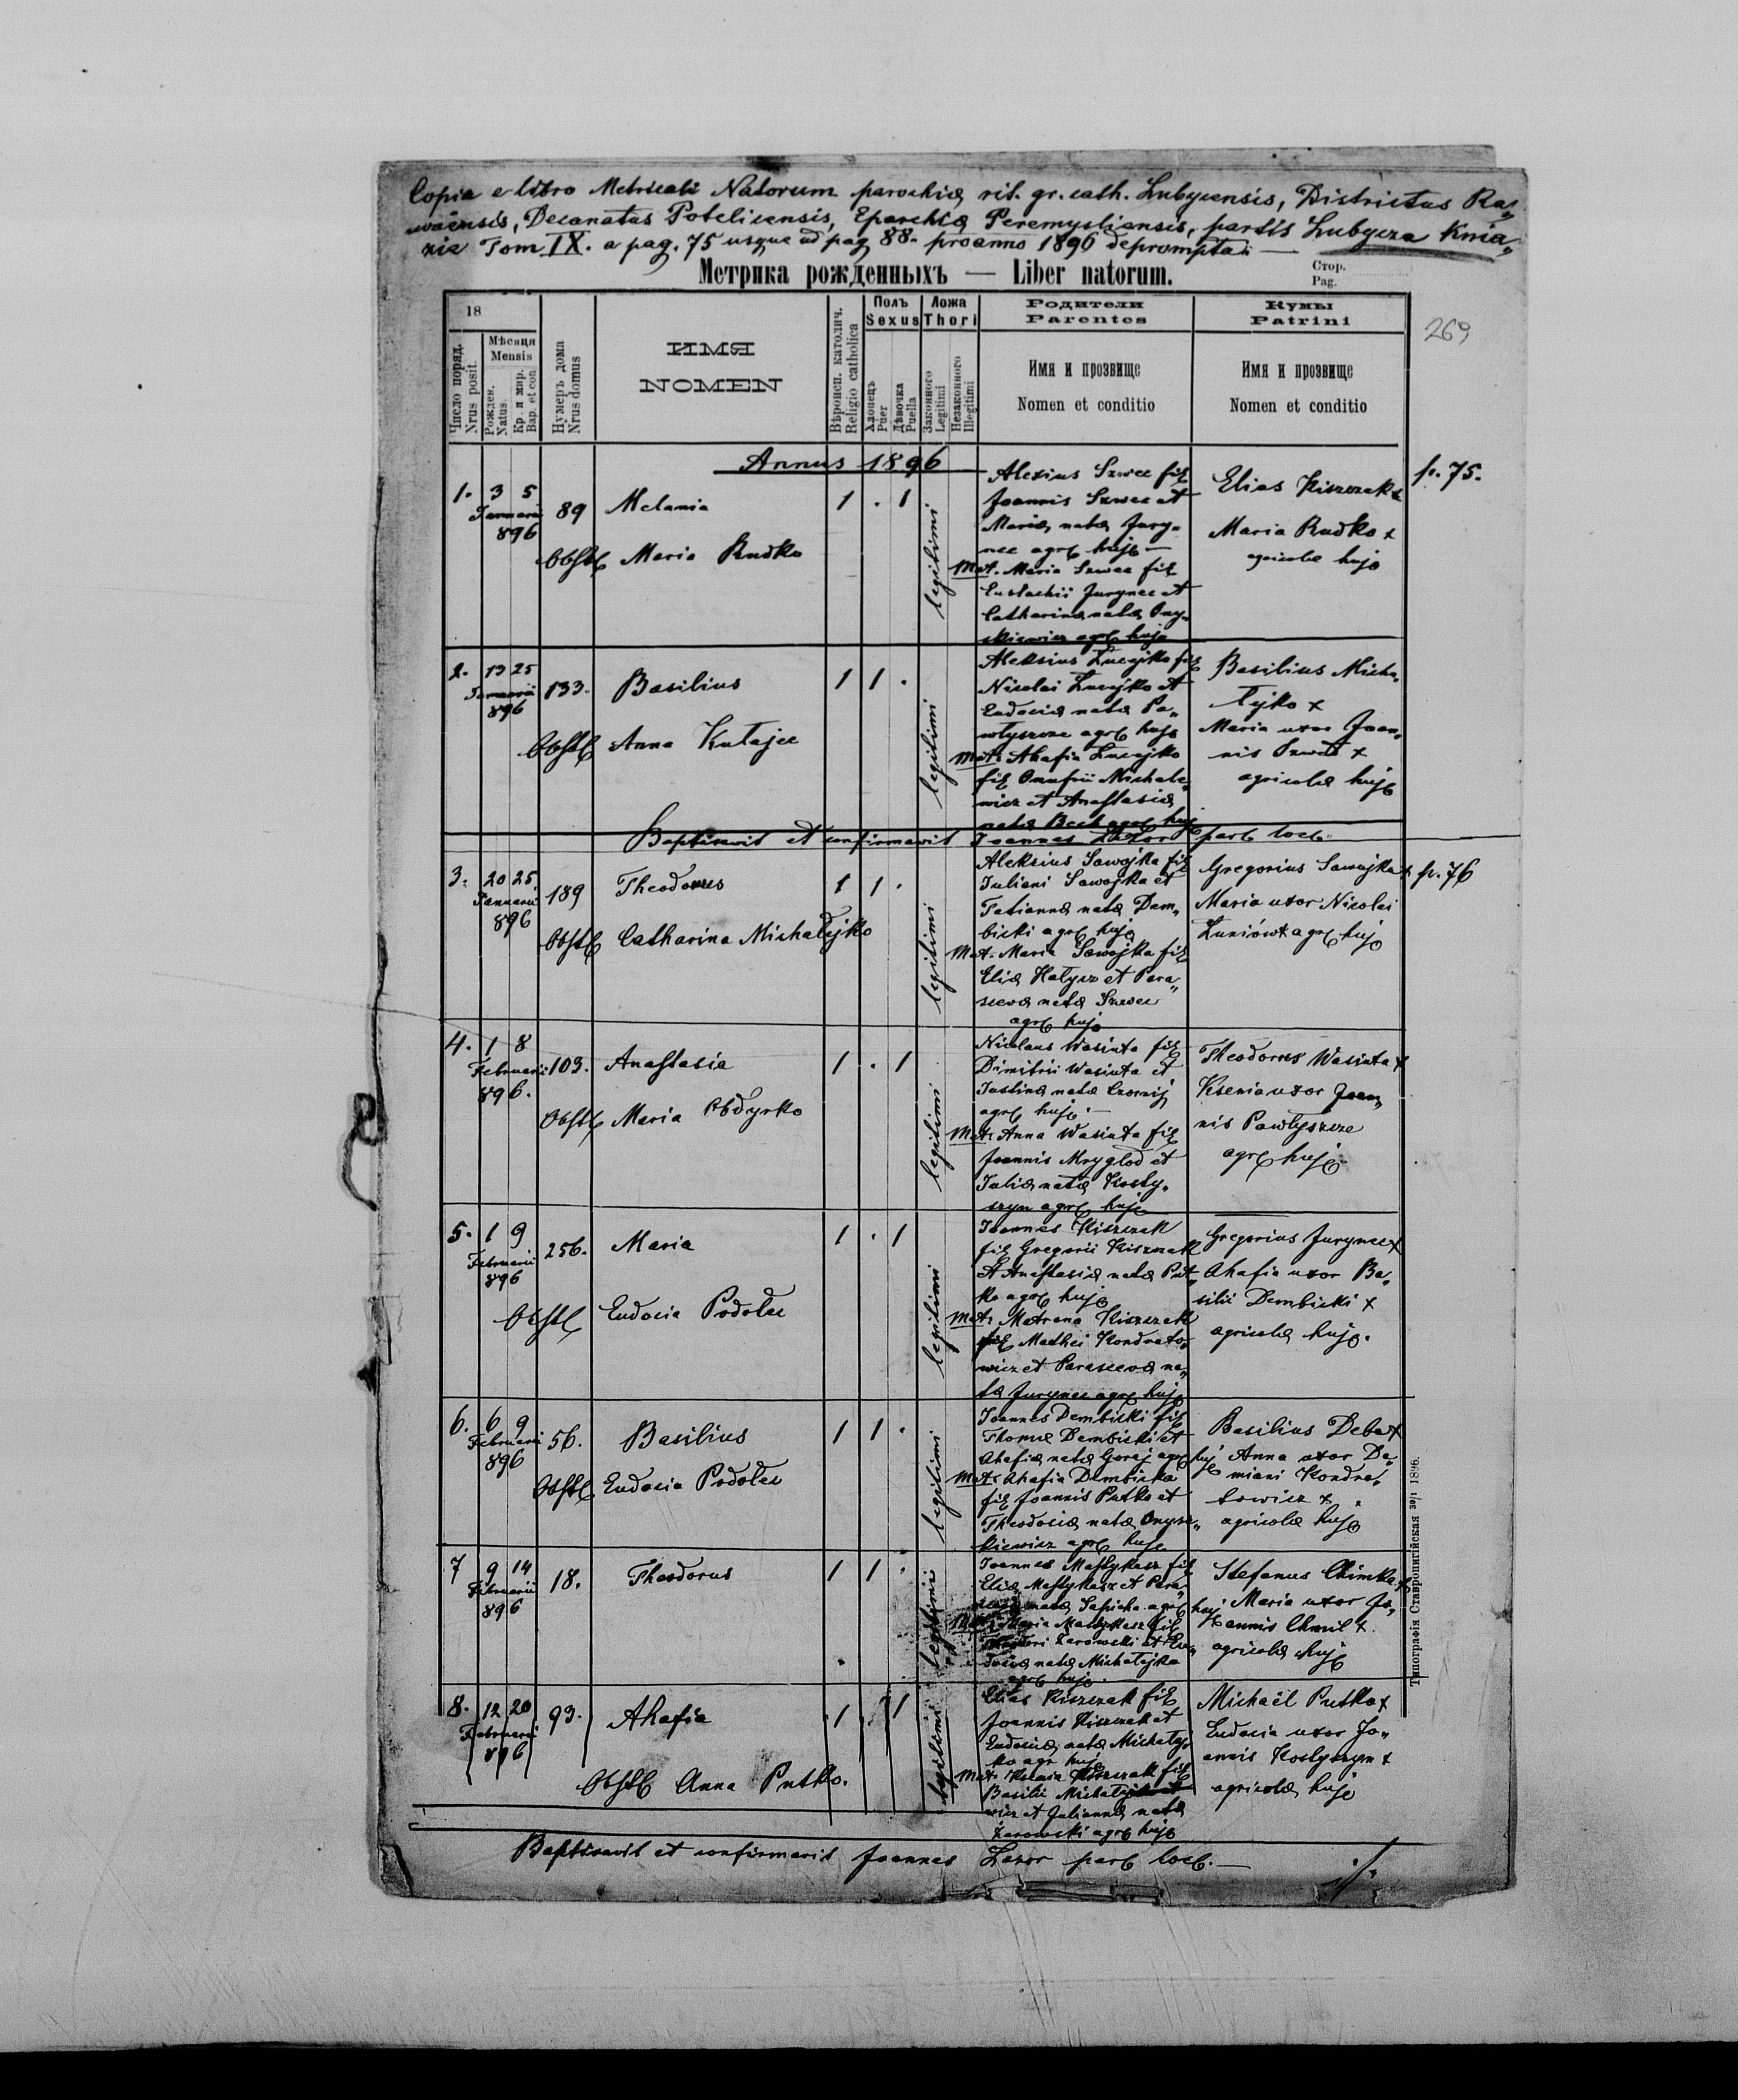 Copia e libro Metricali Natorum parochiæ rit. gr. cath. Lubycensis, Districtus Ra„
waënsis, Decanatus Potelicensis, Eparchiæ Peremysliensis, partis Lubycza Knia„
zie Tom IX. a pag. 75 usque ad pag 88. pro anno 1896 deprompta
Метрика рожденныхъ — Liber natorum.
Стор.
Pag.
269
18
Число поряд.
Nrus posit.
Мѣсяця
Mensis
Рожден.
Natus.
Кр. и мир.
Bap. et con
Нумеръ дома
Nrus domus
ИМЯ
NOMEN
Вѣроисп. католич.
Religio catholica
Полъ
Sexus
Хлопецъ
Puer
Дѣвочка
Puella
Ложа
Thori
Законного
Legitimi
Незаконного
Illegitimi
Родители
Parentes
Имя и прозвище
Nomen et conditio
Кумы
Patrini
Имя и прозвище
Nomen et conditio
Annus 1896
1. 3 5
Januarii
896
89
Melania
Obst. Maria Rudko
1 . 1
legitimi
Alexius Szwec fil
Joannis Szwec et
Mariæ natæ Jury„
nec agr huj
Mat. Maria Szwec fil
Eustachii Jurynec et
Catharinæ natæ Ony„
szkiewicz agr huj
Elias Kiszczak x
Maria Rudko x
agricolæ huj
p. 75.
2. 13 25
Januarii
896
133.
Basilius
Obst. Anna Kutajec
1 1 .
legitimi
Aleksius Lucejko fil
Nicolai Lucejko et
Eudociæ natæ Pa„
włyszcze agr huj
Mat. Ahafia Lucejko
fil Onufrii Michale„
wicz et Anastasiæ
natæ Bech agr huj
Basilius Micha„
łejko x
Maria uxor Joan„
nis Szwed x
agricolæ huj
Baptisavit et confirmavit Joannes Lazor par loc.
3. 20 25
Januarii
896
189
Theodorus
Obst. Catharina Michałejko
1 1 .
legitimi
Aleksius Sawojka fil
Juliani Sawojka et
Tatiannæ natæ Dem„
bicki agr huj
Mat. Maria Sawojka fil
Eliæ Hałysz et Para„
scevæ natæ Szwec
agr huj
Gregorius Sawojka x
Maria uxor Nicolai
Luniówx agr huj
p. 76
4. 1 8
Februarii
896.
103.
Anastasia
Obst. Maria Obdyrko
1 . 1
legitimi
Nicolaus Wasiuta fil
Dimitrii Wasiuta et
Justinæ natæ Czornij
agr huj
Mat. Anna Wasiuta fil
Joannis Mryglod et
Juliæ natæ Kosty„
szyn agr huj
Theodorus Wasiuta x
Ksenia uxor Joan„
nis Pawłyszcze
agr huj
5. 1 9
Februarii
896
256.
Maria
Obst. Eudocia Podolec
1 . 1
legitimi
Joannes Kiszczak
fil Gregorii Kiszczak
et Anastasiæ natæ Put„
ko agr huj
Mat. Matrona Kiszczak
fil Mathei Kondrato„
wicz et Parascevæ na„
tæ Jurynec agr huj
Gregorius Jurynec x
Ahafia uxor Ba„
silii Dembicki x
agricolæ huj.
6. 6 9
Februarii
896
56.
Basilius
Obst. Eudocia Podolec
1 1 .
legitimi
Joannes Dembicki fil
Thomæ Dembicki et
Ahafiæ natæ Goraj agr huj
Mat. Ahafia Dembicka
fil Joannis Putko et
Theodosiæ natæ Onysz„
kiewicz agr huj
Basilius Deba x
Anna uxor Da„
miani Kondra„
towicz x
agricolæ huj
7 9 14
Februarii
896
18.
Theodorus
1 1 .
legitimi
Joannes Mastykasz fil
Eliæ Mastykasz et Para„
scevæ natæ Sapicha agr huj
Mat. Maria Mastykasz fil
Theodori Żarowski et Eu„
dociæ natæ Michałejko
agr huj.
Stefanus Chimka x
Maria uxor Jo„
annis Chmil x
agricolæ huj
8. 12 20
Februarii
896
93.
Ahafia
Obst. Anna Putko.
1 . 1
legitimi
Elias Kiszczak fil
Joannis Kiszczak et
Eudociæ natæ Michałej„
ko agr huj
Mat. Kiszczak fil
Basilii
wicz et Juliannæ natæ
Żarowski agr huj
Michaël Putko x
Eudocia uxor Jo„
annis Kostyszyn x
agricolæ huj
Baptisavit et confirmavit Joannes Lazor par loc.
./.
Типографія Ставропигійская 30/1 1896.